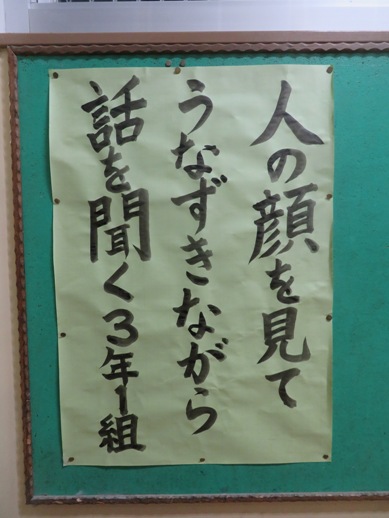 人の顔を見て
うなずきながら
話を聞く3年1組